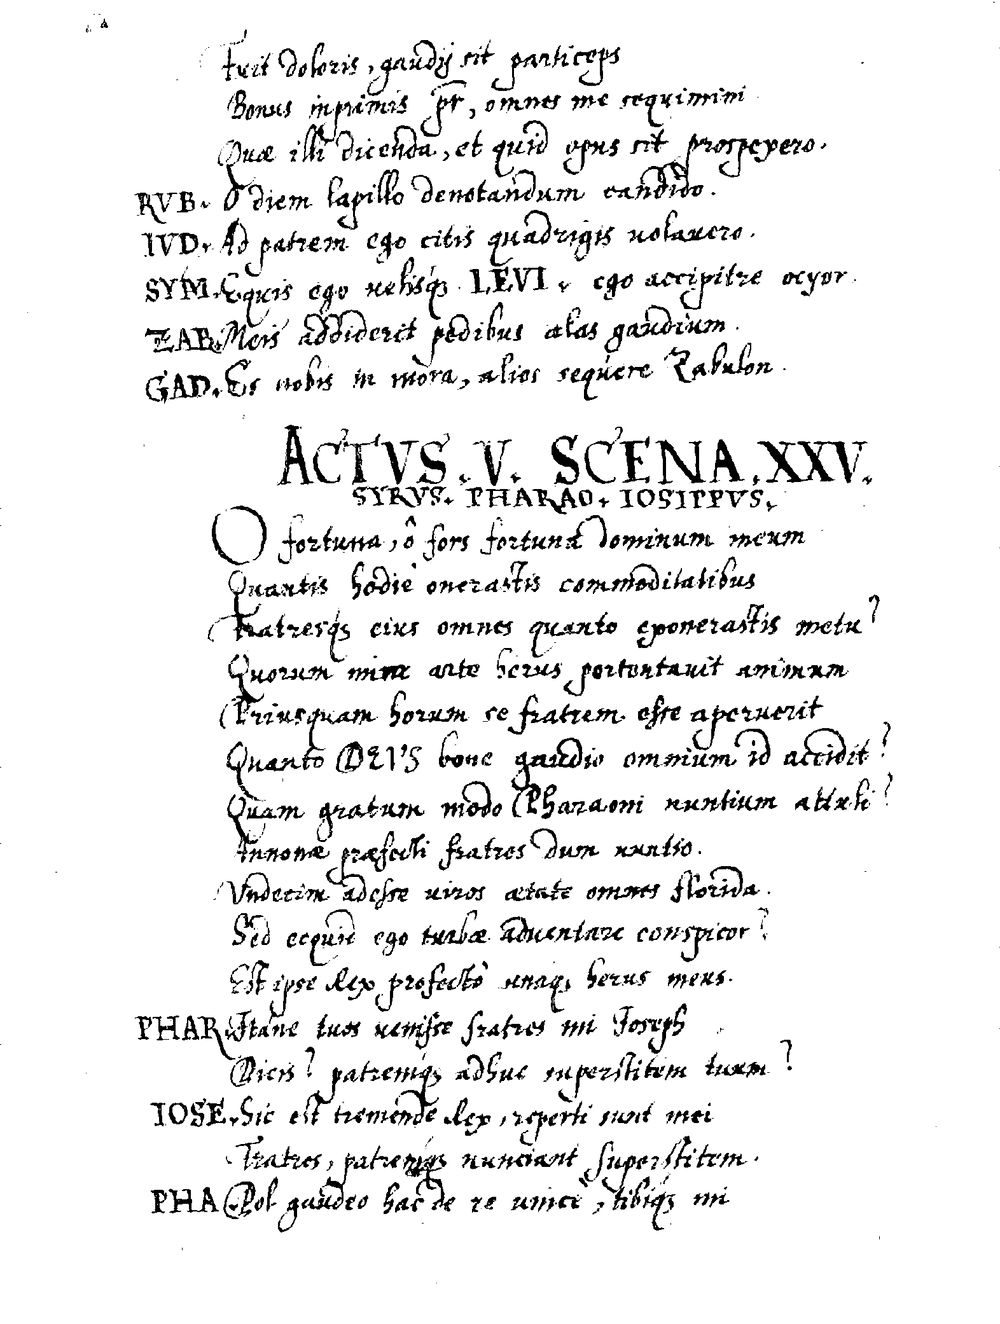 Fuit doloris, gaudij sit particeps
Bonus inprimis pr̄, omnes me sequimini
Quæ illi dicenda, et quid opus sit prospexero.
RVB. O diem lapillo denotandum candido.
IVD. Ad patrem ego citis quadrigis uolauero.
SYM. Equis ego uelisq́ꝫ LEVI, ego accipitre ocyor.
ZAB. Meis addiderit pedibus alas gaudium.
GAD. Es nobis in mora, alios sequere Zabulon.
ACTVS. V. SCENA. XXV.
SYRVS. PHARAO. IOSIPPVS.
O fortuna, ô fors fortuna dominum meum
Quantis hodie onerastis commoditatibus
Fratresq́ꝫ eius omnes quanto exonerastis metu?
Quorum mira arte herus portentauit animum
Priusquam horum se fratrem esse aperuerit
Quanto DEVS bone gaudio omnium id accidit?
Quam gratum modo Pharaoni nuntium attuli?
Annonæ præfecti fratres dum nuntio.
Vndecim adesse uiros ætate omnes florida.
Sed ecquid ego turbæ aduentare conspicor?
Est ipse Rex profecto unaqꝫ herus meus.
PHAR. Itane tuos uenisse fratres mi Joseph
Dicis? patremq́ꝫ adhuc superstitem tuum?
IOSE. Sic est tremende Rex, reperti sunt mei
Fratres, patremq́ꝫ nunciant superstitem.
PHA. Pol gaudeo hac de re unice, tibiq́ꝫ mi